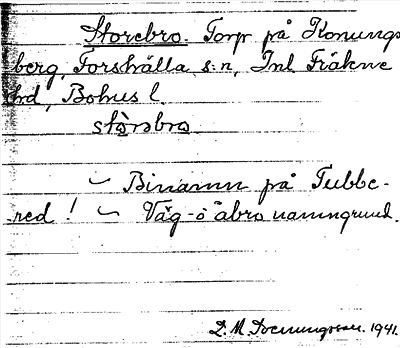 Storebro. Torp på Konungs-
berg, Forshälla s:n, Inl. Fräkne
hd, Bohus l.
stòrsbro
~ Binamn på Tubbe-
red! ~ Väg- o åbro namngrund.
1941.